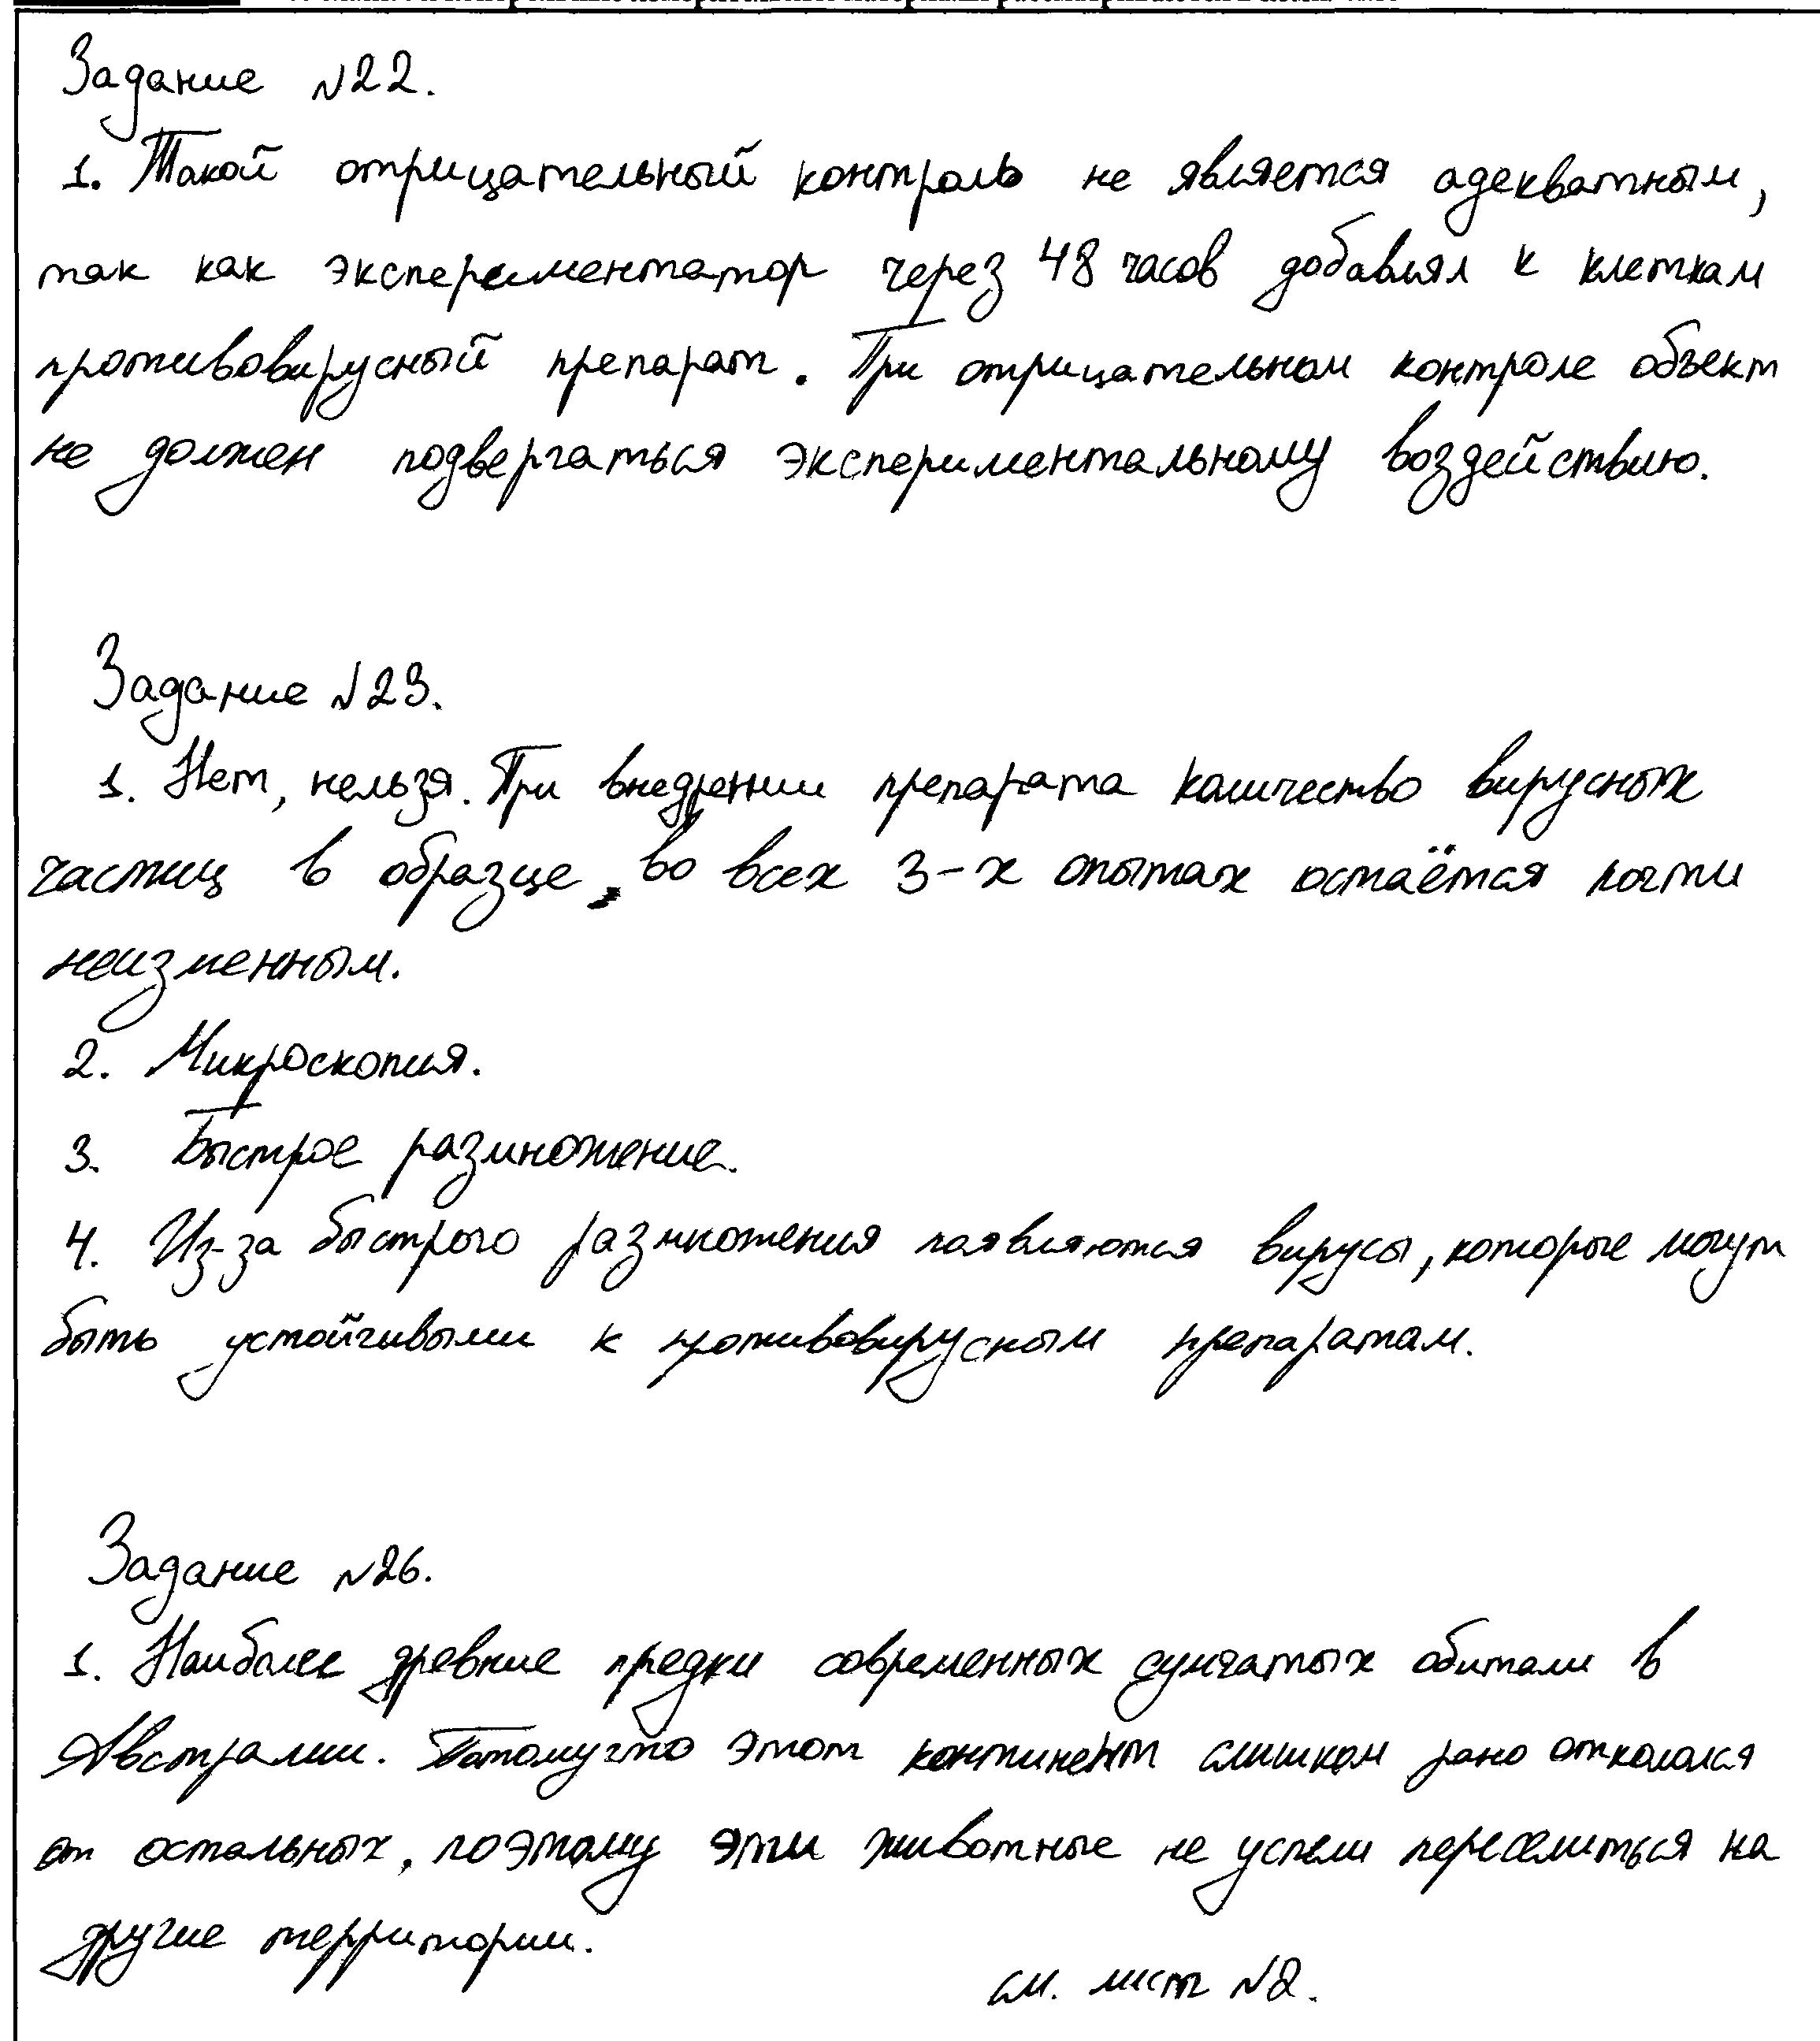 Задание №22.
1. Такой отрицательный контроль не является адекватным,
так как экспериментатор через 48 часов добавлял к клеткам
противовирусный препарат. При отрицательном контроле объект
не должен подвергаться экспериментальному воздействию.
Задание №23.
1. Нет, нельзя. При внедрении препарата количество вирусных
частиц в образце, во всех 3-х опытах остаётся почти
неизменным.
2. Микроскопия.
3. Быстрое размножение.
4. Из-за быстрого размножения появляются вирусы, которые могут
быть устойчивыми к противовирусным препаратам.
Задание №26.
1. Наиболее древние предки современных сумчатых обитали в
Австралии. Потомучто этот континент слишком рано откололся
от остальных, поэтому эти животные не успели переселиться на
другие территории.
см. лист №2.